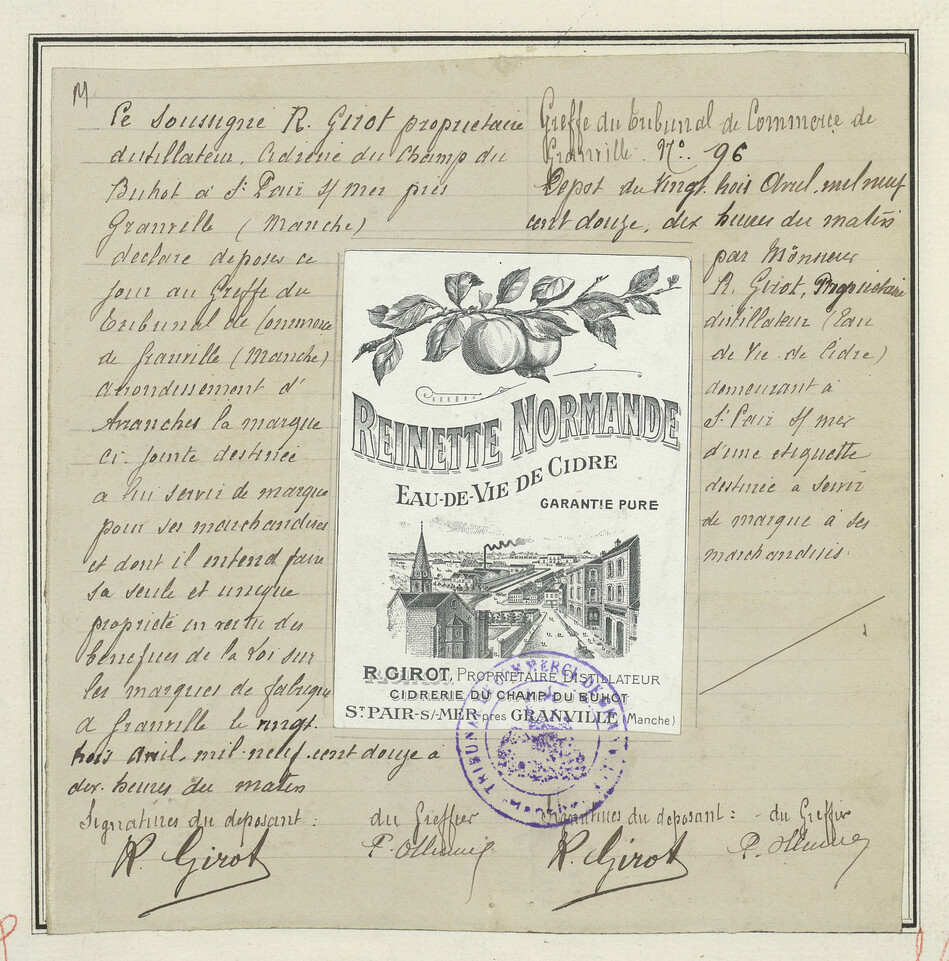 M
Le soussigné R. Girot propriétaire
distillateur, Cidrerie du Champ du
Buhot à St Pair s/ mer près
Granville (Manche)
déclare déposer ce
jour au Greffe du
Tribunal de Commerce
de Granville (Manche)
arrondissement d'
Avranches la marque
ci-jointe destinée
à lui servir de marque
pour ses marchandises
et dont il entend faire
sa seule et unique
propriété en vertu des
bénéfices de la Loi sur
les marques de fabrique
à Granville le vingt
trois avril, mil neuf cent douze à
dix heures du matin
Signatures du déposant : du Greffier
R. Girot
Greffe du Tribunal de Commerce de
Granville. No. 96
Dépôt du Vingt trois Avril, mil neuf
cent douze, dix heures du matin
par Monsieur
R. Girot, Propriétaire
distillateur (Eau
de Vie de Cidre)
demeurant à
St Pair s/ mer
d'une étiquette
destinée à servir
de marque à ses
marchandises
Signatures du déposant : du Greffier
R. Girot
REINETTE NORMANDE
EAU-DE-VIE DE CIDRE
GARANTIE PURE
R. GIROT, PROPRIÉTAIRE DISTILLATEUR
CIDRERIE DU CHAMP DU BUHOT
ST PAIR-S/-MER près GRANVILLE (Manche)
TRIBUNAL DE COMMERCE DE